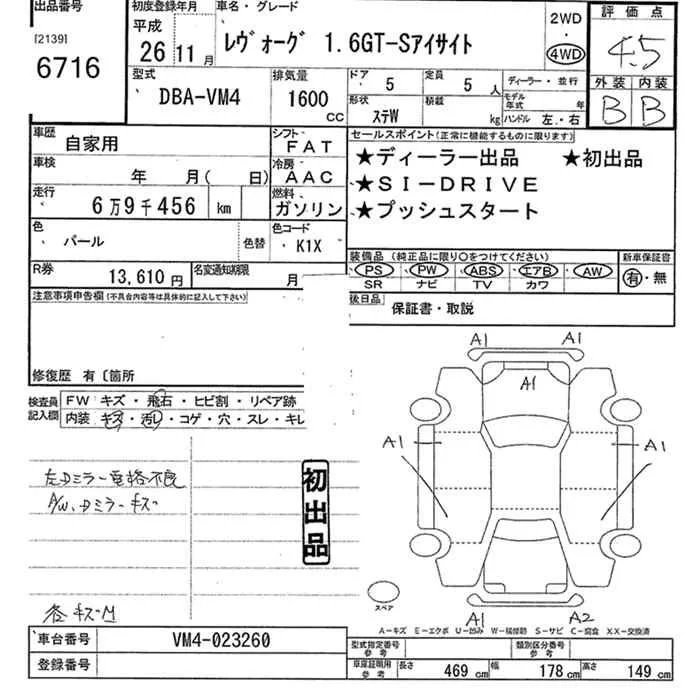 出品番号
[2139]
6716
初度登録年月
平成
26 11月
車名・グレード
レヴォーグ 1.6GT-Sアイサイト
2WD
・
4WD
評価点
4.5
外装 内装
B B
型式
DBA-VM4
排気量
1600 CC
ドア 5
定員 5 人
ディーラー・並行
形状 ステW
積載 kg
モデル年式 年
ハンドル 左・右
車歴 自家用
シフト FAT
セールスポイント(正常に機能するものに限ります)
★ディーラー出品 ★初出品
★SI-DRIVE
★プッシュスタート
車検 年 月( 日)
冷房 AAC
走行 6万9千456 km
燃料 ガソリン
色 パール
色替
色コード K1X
装備品 (純正品に限り○をつけてください)
新車保証書
PS PW ABS エアB AW
有・無
SR ナビ TV カワ
R券 13,610円
名変通知期限 月
後日品 保証書・取説
注意事項申告欄(不具合内容等は具体的に記入して下さい)
修復歴 有〔箇所
検査員記入欄
FW キズ・飛石・ヒビ割・リペア跡
内装 キズ・汚レ・コゲ・穴・スレ・キレ
左Dミラー電格不良
A/W、Dミラーキズ
初出品
各キズM
A1 A1
A1
A1 A1
A1 A2
スペア
A-キズ E-エクボ U-凹み W-補修跡 S-サビ C-腐食 XX-交換済
車台番号 VM4-023260
登録番号
型式指定番号 参考
類別区分番号 参考
車庫証明用 参考
長さ 469 cm 幅 178 cm 高さ 149 cm